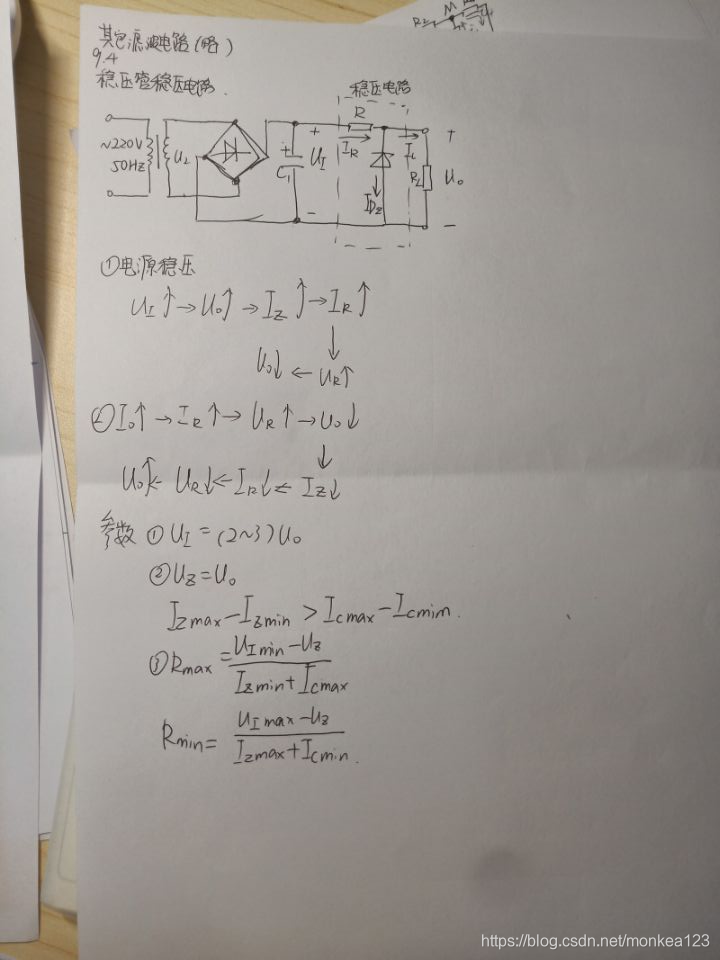 其它滤波电路(略)
9.4
稳压管稳压电路.
稳压电路
~220V
50HZ
U₂
C₁
+
+
U_I
-
R
I_R
I_DZ
I_L
R_L
+
U₀
-
①电源稳压
U_I↑→U₀↑→I_Z↑→I_R↑
↓
U₀↓←U_R↑
②I₀↑→I_R↑→U_R↑→U₀↓
↓
U₀↑←U_R↓←I_R↓←I_Z↓
参数 ①U_I=(2~3)U₀
②U_Z=U₀
I_Zmax-I_Zmin>I_Cmax-I_Cmim.
③R_max=(U_Imin-U_Z)/(I_Zmin+I_Cmax)
R_min=(U_Imax-U_Z)/(I_Zmax+I_Cmin).
https://blog.csdn.net/monkea123